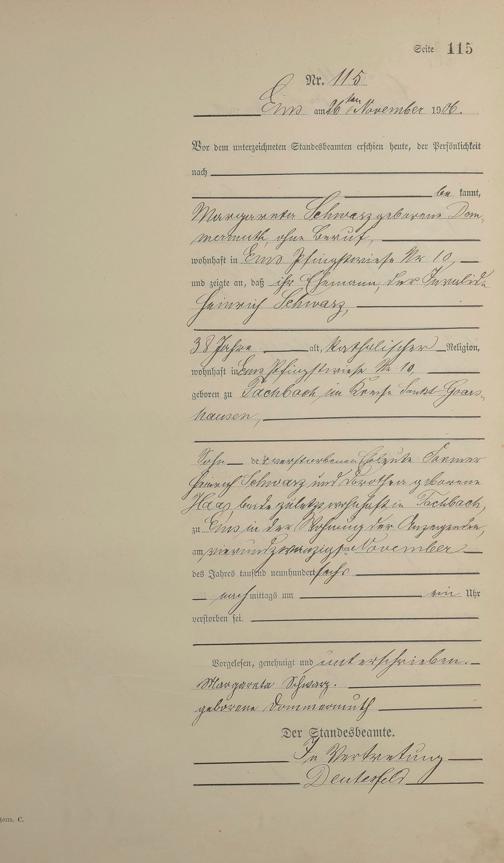 Seite 115
Nr. 115
Ems am 26ten November 1906.
Vor dem unterzeichneten Standesbeamten erschien heute, der Persönlichkeit
nach
be kannt,
Margareta Schwarz geborene Dom-
mermuth, ohne Beruf,
wohnhaft in Ems Pfingstwiese Nr 10,
und zeigte an, daß ihr Ehemann, der Invalide
Heinrich Schwarz,
38 Jahre alt, katholischer Religion,
wohnhaft in Ems Pfingstwiese Nr 10,
geboren zu Fachbach, im Kreise Sankt Goars-
hausen,
Sohn der verstorbenen Eheleute
Heinrich Schwarz und Dorothea geborene
Haas beide zuletzt wohnhaft in Fachbach,
zu Ems in der Wohnung der Anzeigenden,
am vierundzwanzigsten November
des Jahres tausend neunhundert sechs
nach mittags um ein Uhr
verstorben sei.
Vorgelesen, genehmigt und unterschrieben.
Margareta Schwarz.
geborene Dommermuth
Der Standesbeamte.
In Vertretung
C.